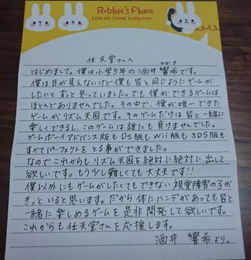 Rabbit's Phone
任天堂さんへ
はじめまして。僕は小学5年の酒井響希です。
僕は目が見えないけど僕も皆と同じようにゲームが
したいと思っていました。でも僕ができるゲームは
ほとんどありませんでした。その中で、僕が唯一できた
ゲームがリズム天国です。そのゲームだけは皆と一緒に
楽しくできるし、このゲームは誰にも負けませんでした。
ゲームボーイアドバンス版もDS版もWii版も3DS版も
すべてパーフェクトをとる事ができました。
なのでこれからもリズム天国を絶対に絶対に出して
欲しいです。もう少し難しくても大丈夫です!!
僕以外にもゲームがしたくてもできない視覚障害の子が
きっといると思います。だから体にハンデがあっても皆と
一緒に楽しめるゲームを是非開発して欲しいです。
これからも任天堂さんを応援します。
酒井 響希より。